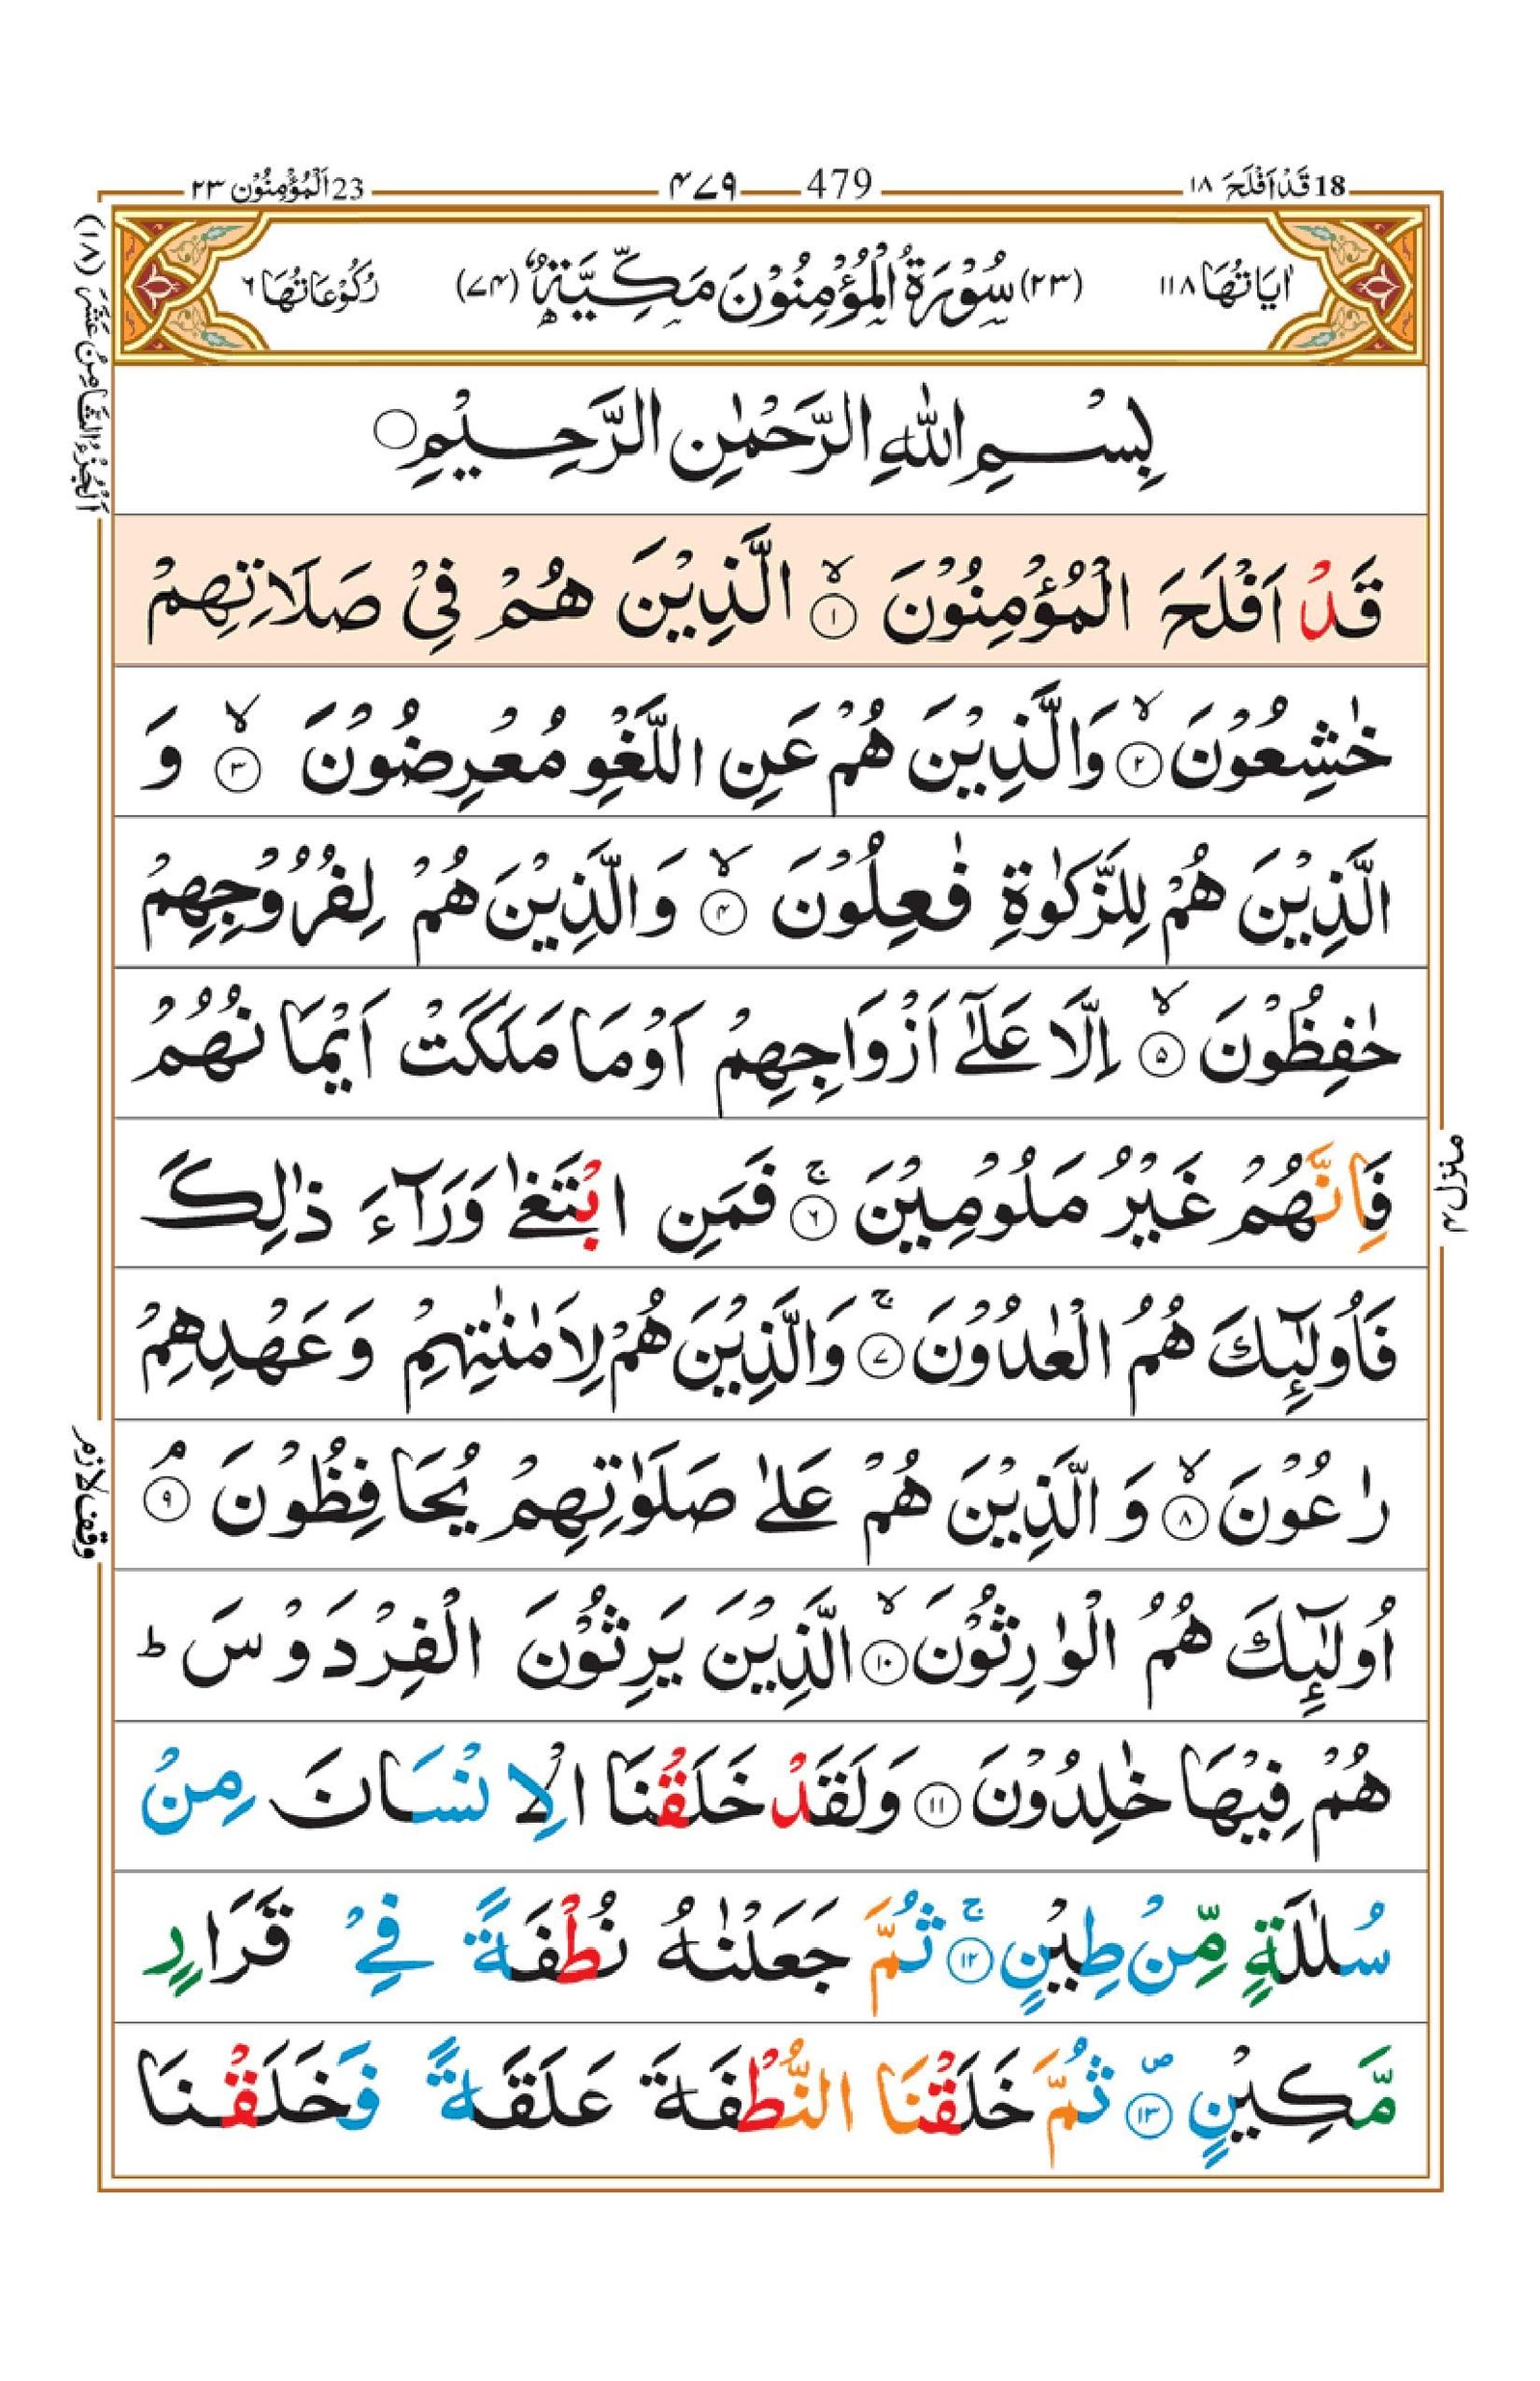 18 قَدْ اَفْلَحَ ١٨
479 ۴۷۹
23 اَلْمُؤْمِنُوْن ٢٣
اٰيَاتُهَا ١١٨
(٢٣) سُوْرَةُ الْمُؤْمِنُوْنَ مَكِّيَّةٌ (٧۴)
رُكُوْعَاتُهَا ٦
بِسْمِ اللهِ الرَّحْمٰنِ الرَّحِيْمِ
قَدْ اَفْلَحَ الْمُؤْمِنُوْنَ ۙ ١ الَّذِيْنَ هُمْ فِيْ صَلَاتِهِمْ
خٰشِعُوْنَ ۙ ٢ وَالَّذِيْنَ هُمْ عَنِ اللَّغْوِ مُعْرِضُوْنَ ۙ ٣ وَ
الَّذِيْنَ هُمْ لِلزَّكٰوةِ فٰعِلُوْنَ ۙ ۴ وَالَّذِيْنَ هُمْ لِفُرُوْجِهِمْ
حٰفِظُوْنَ ۙ ۵ اِلَّا عَلٰٓى اَزْوَاجِهِمْ اَوْ مَا مَلَكَتْ اَيْمَانُهُمْ
فَاِنَّهُمْ غَيْرُ مَلُوْمِيْنَ ۚ ٦ فَمَنِ ابْتَغٰى وَرَآءَ ذٰلِكَ
فَاُولٰٓئِكَ هُمُ الْعٰدُوْنَ ۚ ٧ وَالَّذِيْنَ هُمْ لِاَمٰنٰتِهِمْ وَعَهْدِهِمْ
رٰعُوْنَ ۙ ٨ وَالَّذِيْنَ هُمْ عَلٰى صَلَوٰتِهِمْ يُحَافِظُوْنَ ۘ ٩
اُولٰٓئِكَ هُمُ الْوٰرِثُوْنَ ۙ ١٠ الَّذِيْنَ يَرِثُوْنَ الْفِرْدَوْسَ ؕ
هُمْ فِيْهَا خٰلِدُوْنَ ١١ وَلَقَدْ خَلَقْنَا الْاِنْسَانَ مِنْ
سُلٰلَةٍ مِّنْ طِيْنٍ ۚ ١٢ ثُمَّ جَعَلْنٰهُ نُطْفَةً فِيْ قَرَارٍ
مَّكِيْنٍ ۪ ١٣ ثُمَّ خَلَقْنَا النُّطْفَةَ عَلَقَةً فَخَلَقْنَا
اَلْجُزْءُ الثَّامِنُ عَشَرَ (١٨)
منزل ۴
وقف لازم